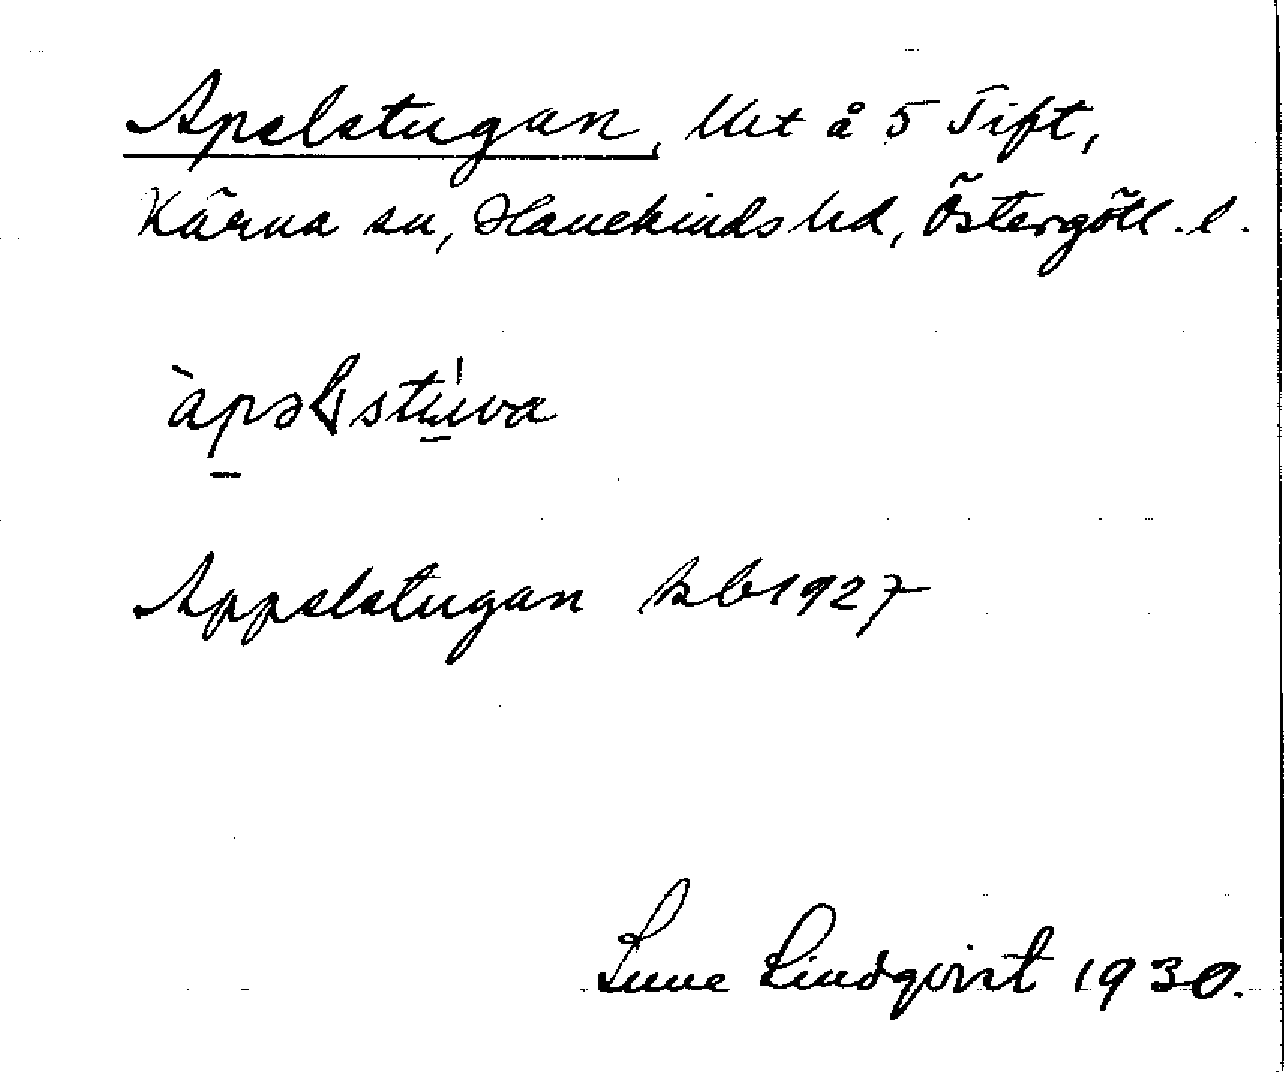 Apelstugan, lht å 5 Tift,
Kärna sn, Hanekinds hd, Östergötl. l.
àpəlstúva
Appelstugan kb 1927
Sune Lindqvist 1930.